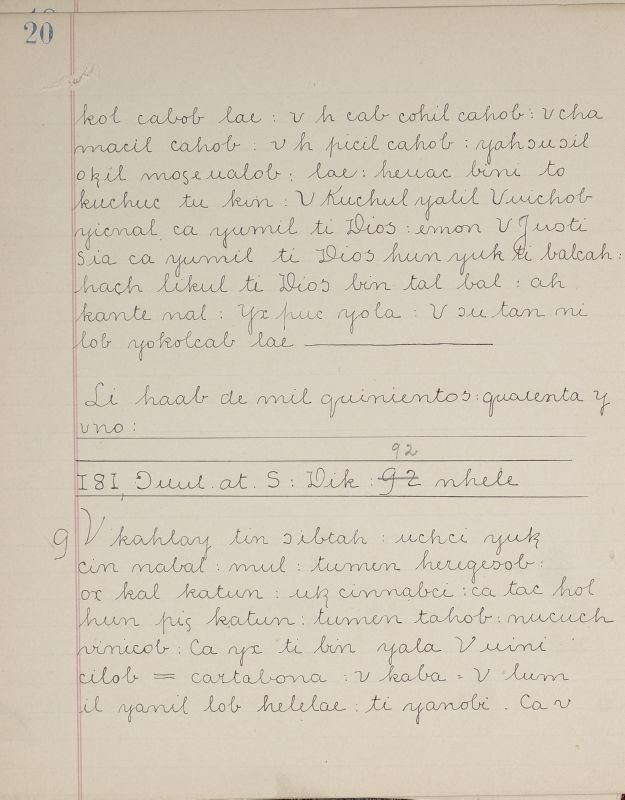 20
kol cabob lae : v h cab cohil cahob : v cha
macil cahob : v h picil cahob : yahɔuɔil
oꜩil moꜩeualob : lae : heuac bini to
kuchuc tu kin : V Kuchul yalil Vuichob
yicnal ca yumil ti Dios : emon V Justi
Sia ca yumil ti Dios hun yuk ti balcah :
hach likul ti Dios bin tal bal : ah
kante nal : Yx puc yola : V ɔu tan ni
lob yokolcab lae
Li haab de mil quinientos : quarenta y
vno :
92
181, Ɔuul. at. S : Dik : 92 nhele
9 V kahlay tin ɔibtah : uchci yuꜩ
cin nabal : mul : tumen heregesob :
ox kal katun : uꜩ cinnabci : ca tac hol
hun piꜩ katun : tumen tahob : nucuch
vinicob : Ca yx ti bin yala Vuini
cilob = cartabona : v kaba = V lum
il yanil lob helelae : ti yanobi . Ca v